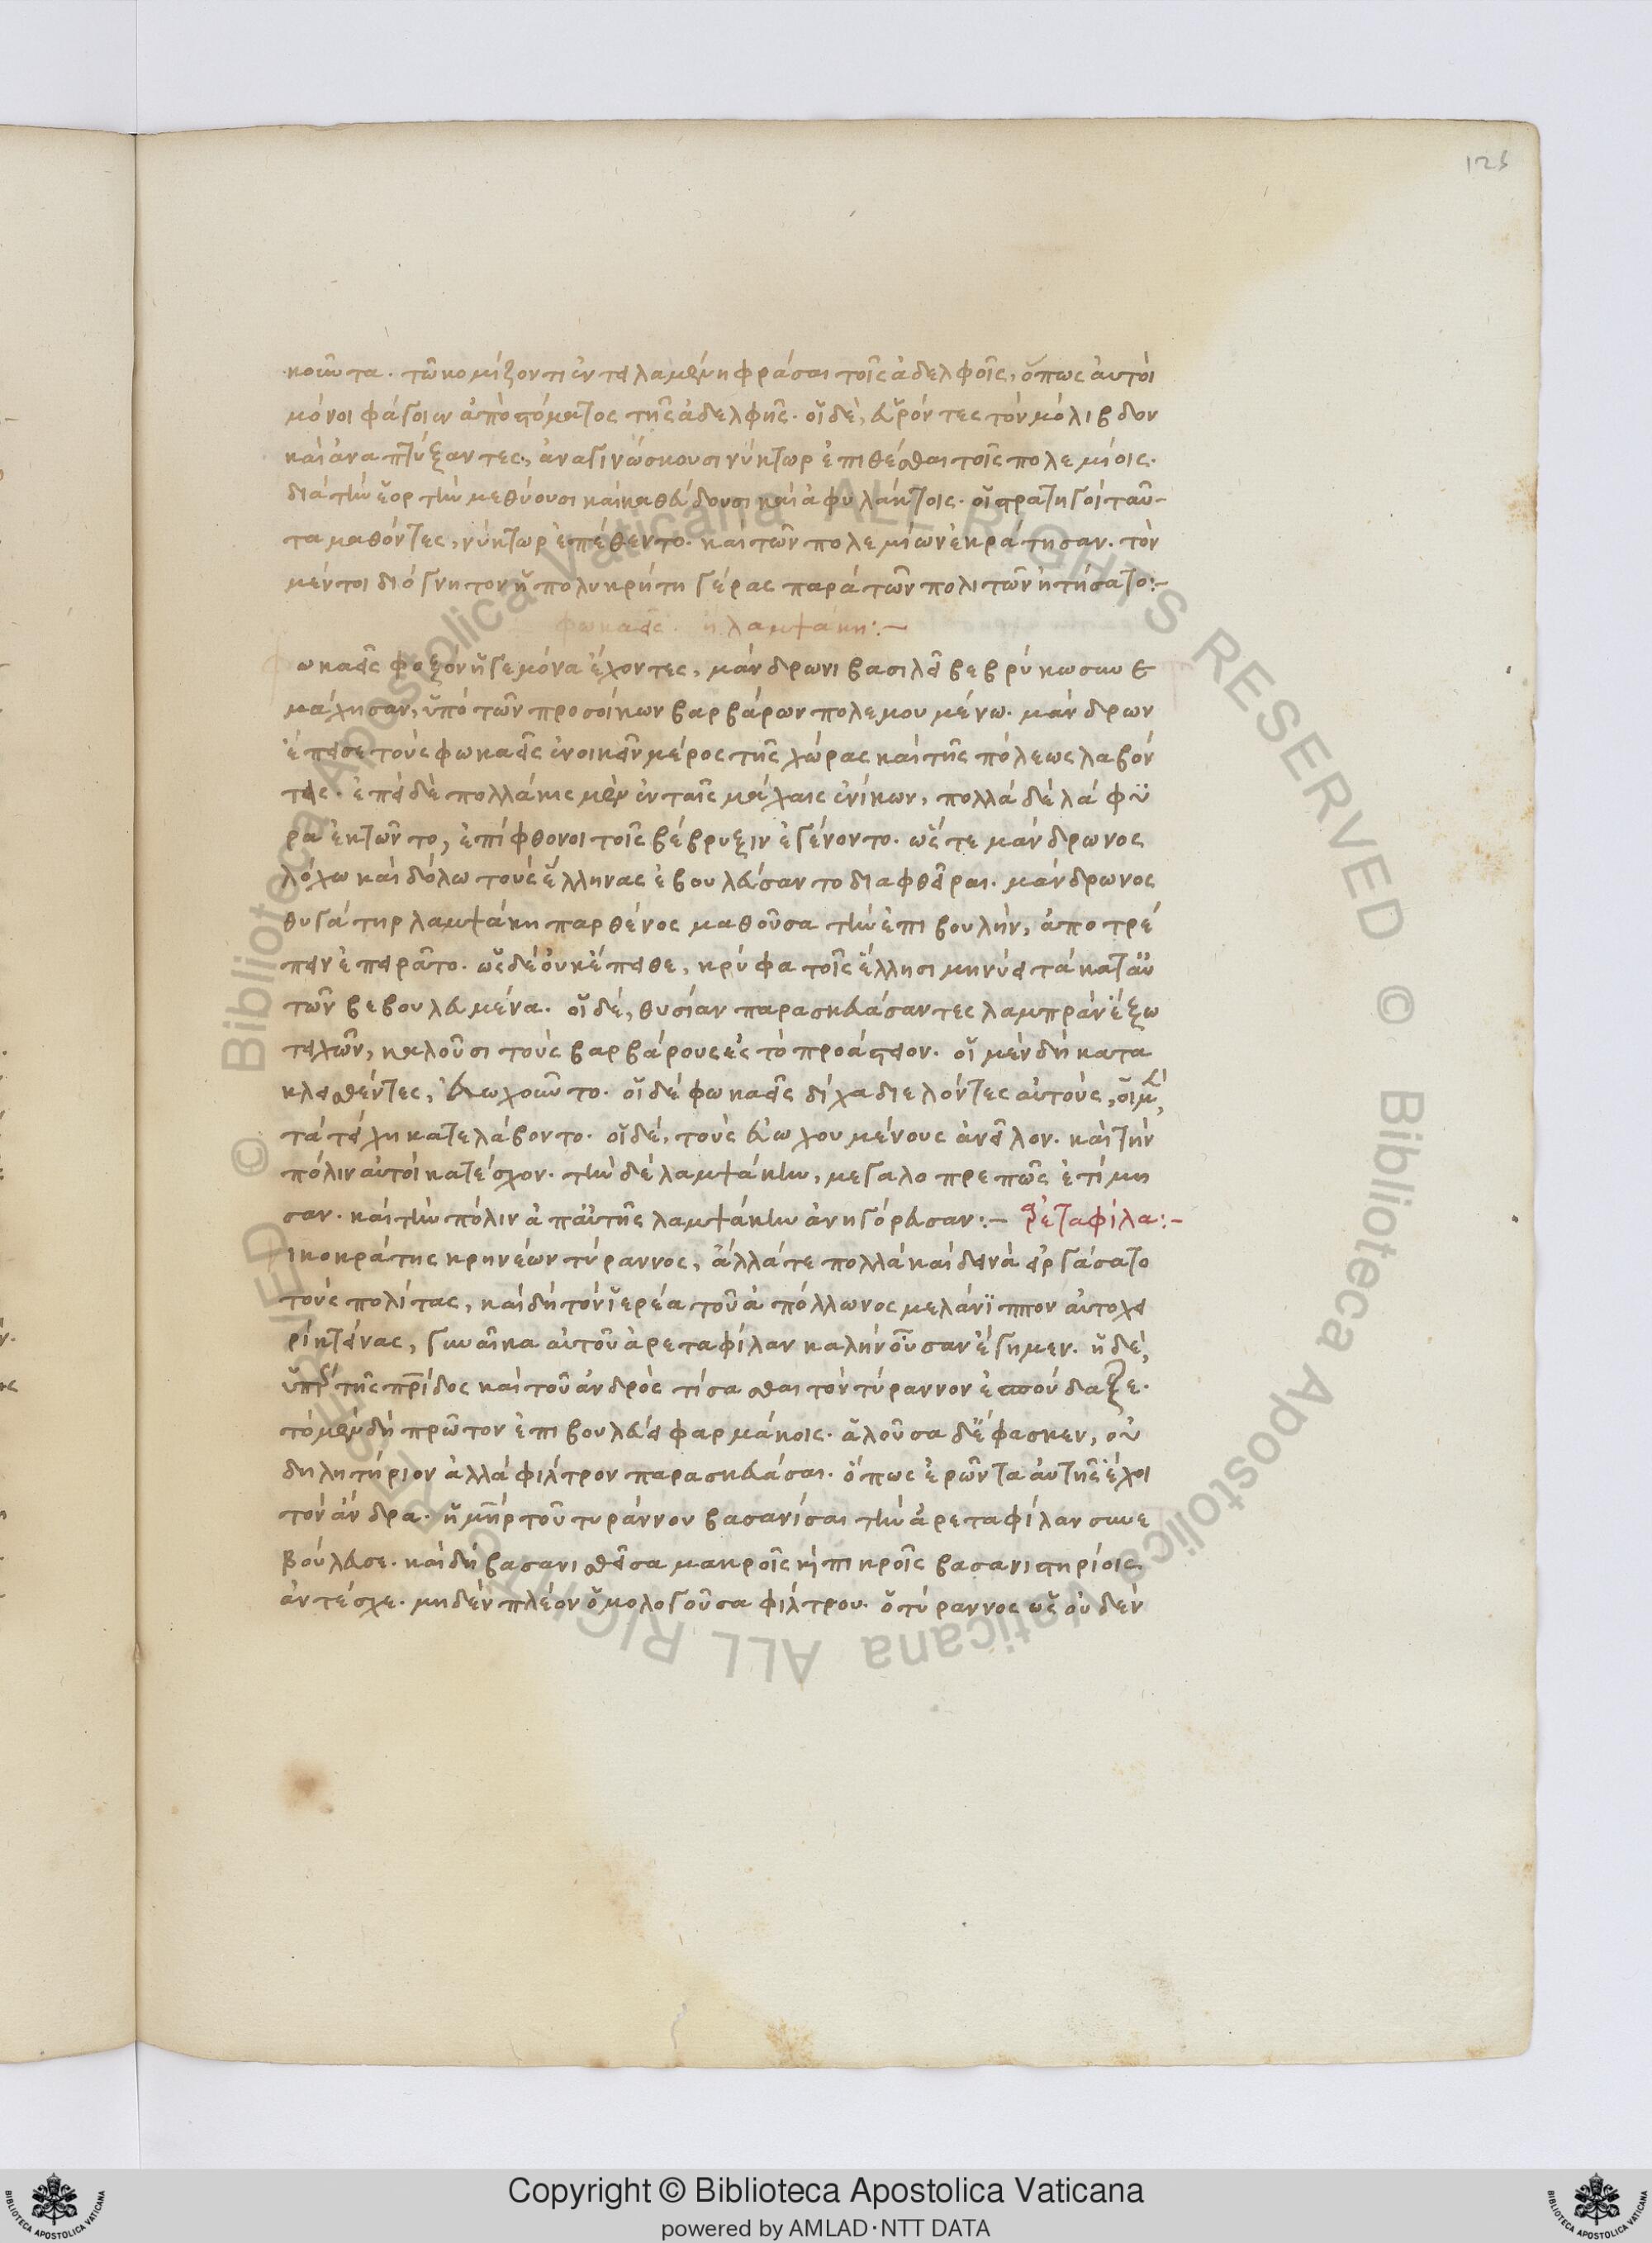 125
κοῦντα. τῷ κομίζοντι ἐντειλαμένη φράσαι τοῖς ἀδελφοῖς, ὅπως αὐτοὶ
μόνοι φάγοιεν ἀπὸ στόματος τῆς ἀδελφῆς. οἱ δὲ, εὑρόντες τὸν μόλιβδον
καὶ ἀναπτύξαντες, ἀναγινώσκουσι νύκτωρ ἐπιθέσθαι τοῖς πολεμίοις.
διὰ τὴν ἑορτὴν μεθύουσι καὶ καθεύδουσι καὶ ἀφυλάκτοις. οἱ στρατηγοὶ ταῦ-
τα μαθόντες, νύκτωρ ἐπέθεντο. καὶ τῶν πολεμίων ἐκράτησαν. τὸν
μέντοι διόγνητον ἡ πολυκρήτη γέρας παρὰ τῶν πολιτῶν ᾐτήσατο:-
φωκαεῖς. ἢ λαμψάκη:-
Φωκαεῖς φοξον ἡγεμόνα ἔχοντες, μάνδρωνι βασιλεῖ βεβρύκων συνε
μάχησαν, ὑπὸ τῶν προσοίκων βαρβάρων πολεμουμένω. μάνδρων
ἔπεισε τοὺς φωκαεῖς ἐνοικεῖν μέρος τῆς χώρας καὶ τῆς πόλεως λαβόν
τας. ἐπεὶ δὲ πολλάκις μὲν ἐν ταῖς μάχαις ἐνίκων, πολλὰ δὲ λάφυ
ρα ἐκτῶντο, ἐπίφθονοι τοῖς βέβρυξιν ἐγένοντο. ὥστε μάνδρωνος
λόχω καὶ δόλω τοὺς ἕλληνας ἐβουλεύσαντο διαφθεῖραι. μάνδρωνος
θυγάτηρ λαμψάκη παρθένος μαθοῦσα τὴν ἐπιβουλὴν, ἀποτρέ
πειν ἐπειρᾶτο. ὡς δὲ οὐκ ἔπειθε, κρύφα τοῖς ἕλλησι μηνύει τὰ κατ᾽ αὐ
τῶν βεβουλευμένα. οἱ δὲ, θυσίαν παρασκευάσαντες λαμπρὰν ἔξω
τειχῶν, καλοῦσι τοὺς βαρβάρους εἰς τὸ προάστειον. οἱ μὲν δὴ κατα
κλειθέντες, εὐωχοῦντο. οἱ δὲ φωκαεῖς δίχα διελόντες αὐτοὺς, οἱ μὲν,
τὰ τείχη κατελάβοντο. οἱ δὲ, τοὺς εὐωχουμένους ἀνεῖλον. καὶ τὴν
πόλιν αὐτοὶ κατέσχον. τὴν δὲ λαμψάκην, μεγαλοπρεπῶς ἐτίμη
σαν. καὶ τὴν πόλιν ἀπ᾽ αὐτῆς λαμψάκην ἀνηγόρευσαν:- ἀρεταφίλα:-
ικοκράτης κρηνέων τύραννος, ἄλλα τε πολλὰ καὶ δεινὰ εἰργάσατο
τοὺς πολίτας, καὶ δὴ τὸν ἱερέα τοῦ ἀπόλλωνος μελάνιππον αὐτοχει
ρὶ κτείνας, γυναῖκα αὐτοῦ ἀρεταφίλαν καλὴν οὖσαν ἔγημεν. ἡ δὲ,
ὑπὲρ τῆς πρίδος καὶ τοῦ ἀνδρὸς τίσασθαι τὸν τύραννον ἐσπούδαζε.
τὸ μὲν δὴ πρῶτον ἐπιβουλεύει φαρμάκοις. ἁλοῦσα δὲ ἔφασκεν, οὐ
δηλητήριον ἀλλὰ φίλτρον παρασκευάσαι. ὅπως ἐρῶντα αὐτῆς ἔχοι
τὸν ἄνδρα. ἡ μηρ τοῦ τυράννου βασανίσαι τὴν ἀρεταφίλαν συνε
βούλευσε. καὶ δὴ βασανισθεῖσα μακροῖς καὶ πικροῖς βασανιστηρίοις
ἀντέσχε. μηδὲν πλέον ὁμολογοῦσα φίλτρου. ὁ τύραννος ὡς οὐδὲν
© Biblioteca Apostolica Vaticana ALL RIGHTS RESERVED © Biblioteca Apostolica Vaticana ALL RIGHTS RESERVED
Copyright © Biblioteca Apostolica Vaticana
powered by AMLAD·NTT DATA
BIBLIOTECA APOSTOLICA VATICANA
BIBLIOTECA APOSTOLICA VATICANA